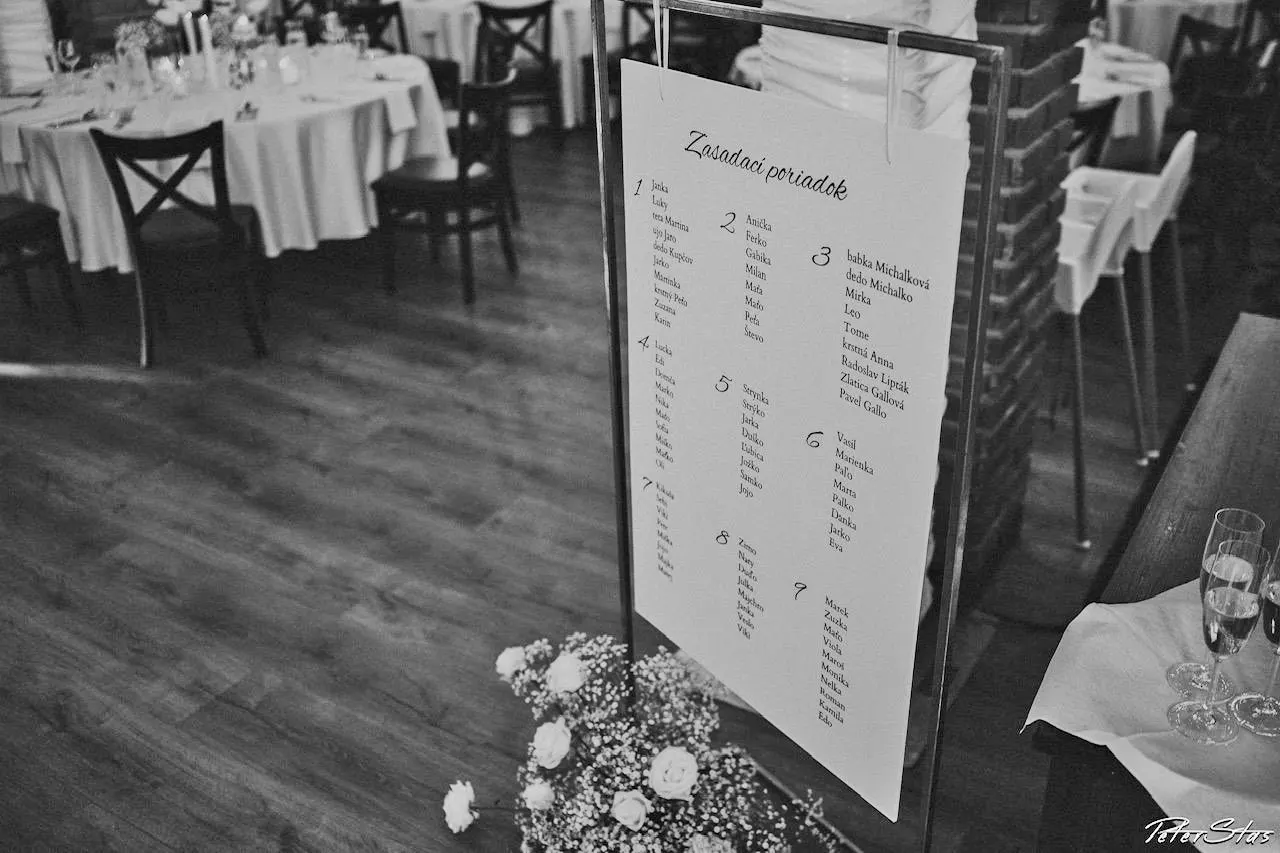 Zasadací poriadok
1
Janka
Luky
teta Martina
ujo Jaro
dedo Kupčov
Jarko
Maminka
krstný Peťo
Zuzana
Karin
2
Anička
Ferko
Gabika
Milan
Maťa
Maťo
Peťa
Števo
3
babka Michalková
dedo Michalko
Mirka
Leo
Tome
krstná Anna
Radoslav Lipták
Zlatica Gallová
Pavel Gallo
4
Lucka
Edi
Domča
Marko
Nika
Maťo
Sofia
Miško
Oli
5
Strynka
Strýko
Jarka
Duško
Ľubica
Jožko
Samko
Jojo
6
Vasil
Marienka
Paľo
Marta
Palko
Danka
Jarko
Eva
7
Kikuša
Sebi
Viki
Peter
Miška
Jojo
Majka
Matej
8
Zemo
Naty
Julka
Janka
Veslo
Viki
9
Marek
Zuzka
Maťo
Viola
Maroš
Monika
Nelka
Roman
Kamila
Edo
PeterStas